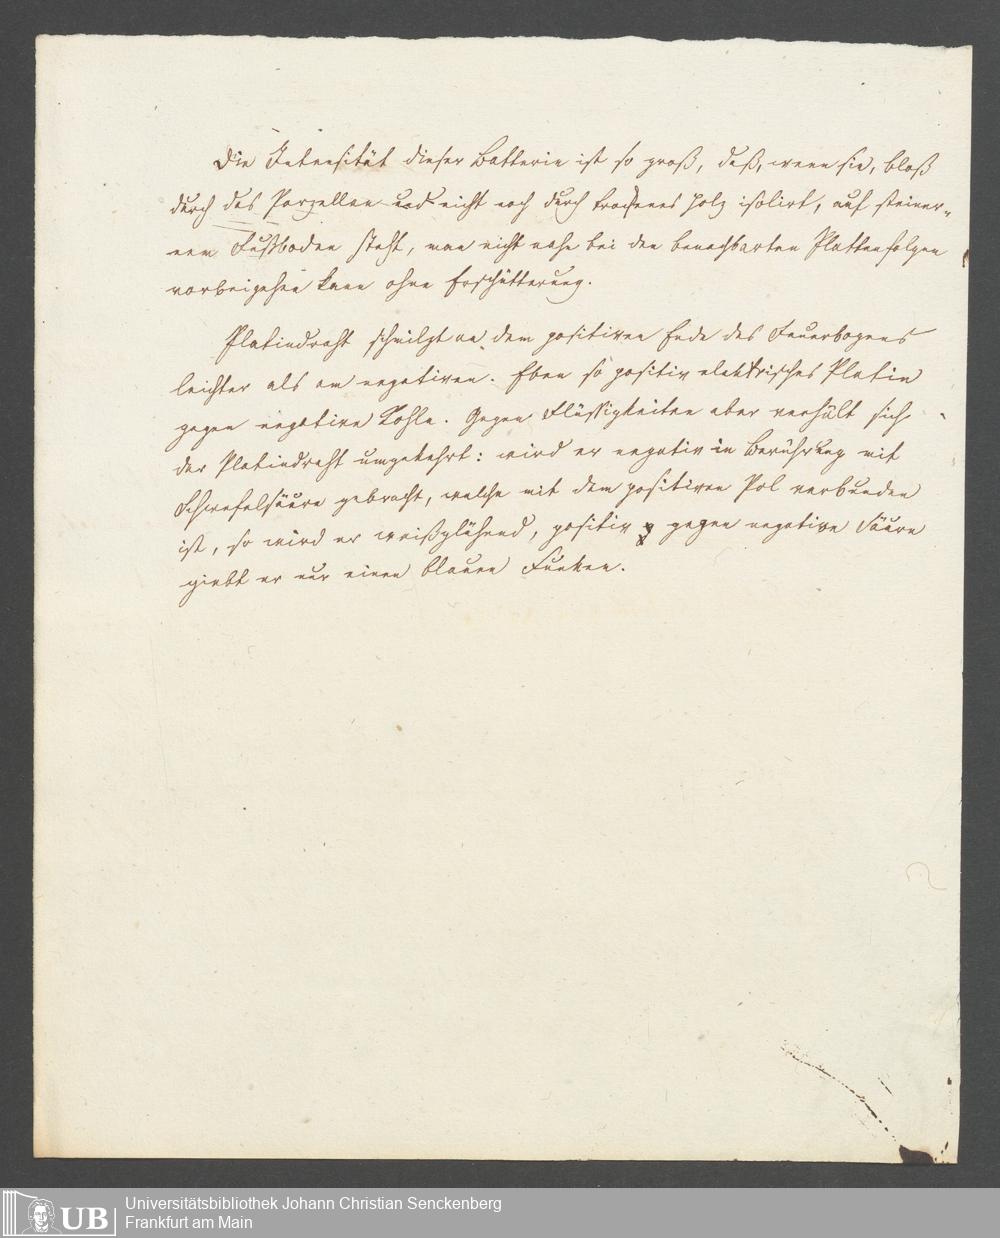 Die Intensität dieser Batterie ist so groß, daß, wenn sie, bloß
durch das Porzellan und nicht noch durch trockenes Holz isolirt, auf steiner-
nem Fußboden steht, man nicht nahe bei den benachbarten Plattenfolgen
vorbeigehen kann ohne Erschütterung.
Platindraht schmilzt an dem positiven Ende des Feuerbogens
leichter als am negativen. Eben so positiv elektrisches Platin
gegen negative Kohle. Gegen Flüssigkeiten aber verhält sich
der Platindraht umgekehrt: wird er negativ in Berührung mit
Schwefelsäure gebracht, welche mit dem positiven Pol verbunden
ist, so wird er weißglühend, positiv gegen negative Säure
giebt er nur einen blauen Funken.
UB
Universitätsbibliothek Johann Christian Senckenberg
Frankfurt am Main